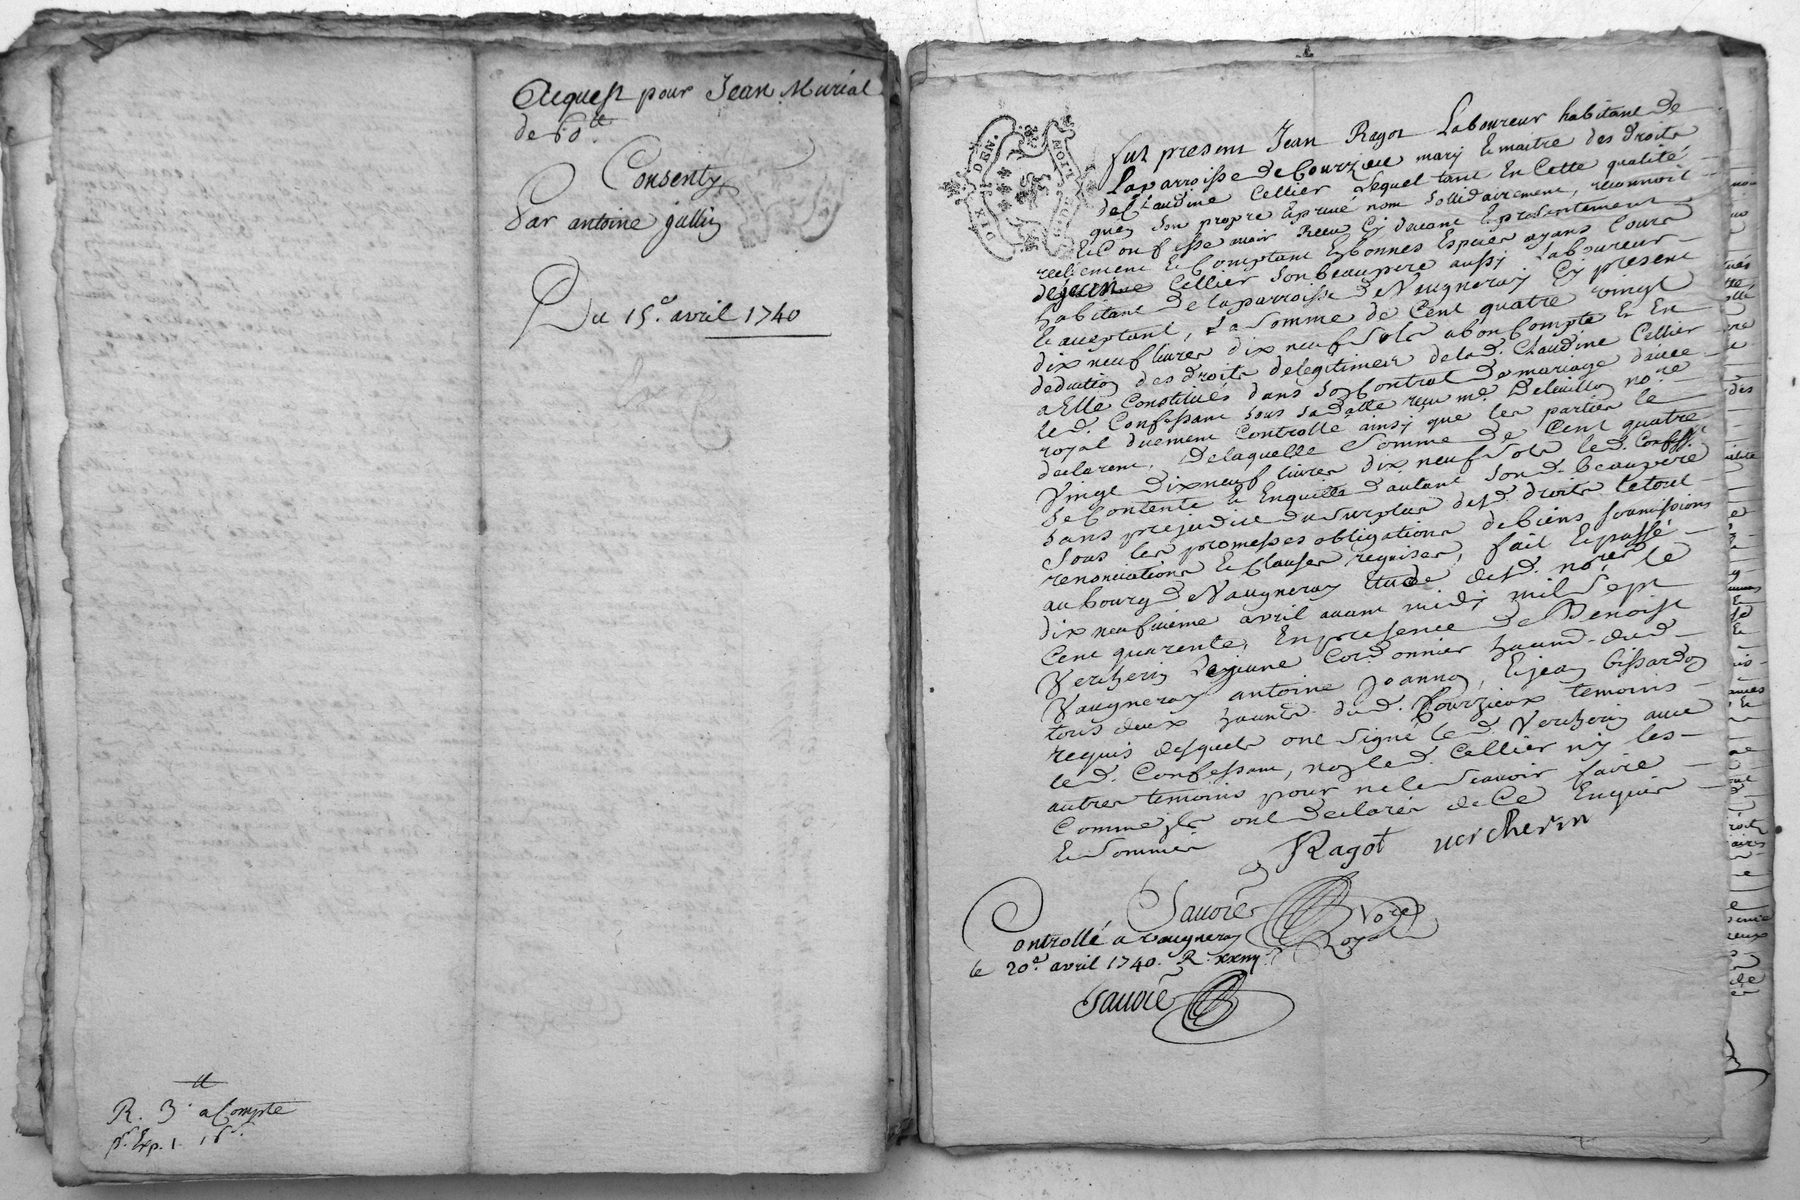 Acquest pour Jean Murial
de 60ᵗᵗ
Consenty
Par antoine gullin
Du 15.ᵉ avril 1740
R. 3.ᵗᵗ a Compte
pʳ. Exp. 1.
GEN. DE LION
DIX DEN.
fut present Jean Ragot Laboureur habitant de
La parroisse de Courzieu mary & maitre des droits
de Claudine Cellier Lequel tant En Cette qualité
qu'en son propre & privé nom sollidairement, reconnoit
& Confesse avoir Receu Cy devant & presentement
reellement & Comptant En bonnes Especes ayans Cours
de jean Cellier son beaupere aussy Laboureur
habitant de la parroisse de Vaugneray Cy present
& aceptant, La somme de Cent quatre vingt
dix neuf livres dix neuf sols a bon Compte & En
deduction des droits de legitimes de lad. Claudine Cellier
a Elle Constitués dans son Contrat de mariage avec
led. Confessant sous sa datte receu mᵉ. Deleuillon noʳᵉ
royal duement Controllé ainsy que les parties le
declarent, De laquelle somme de Cent quatre
Vingt dix neuf livres dix neuf sols led. Confess.ᵗ
se Contente & En quitte d'autant son d. beaupere
sans prejudice du surplus desd. droits le tout
sous les promesses obligations de biens soumissions
renonciations & Clauses requises, fait & passé
au bourg de Vaugneray Etude desd. noʳᵉˢ le
dix neufvieme avril avant midy mil sept
Cent quarente, En presence de Benoist
Vercherin Lejeune Cordonnier haband. dud.
Vaugneray antoine Joannon, & jean bissardon
tous deux haants dud. Courzieux temoins
requis desquels ont signé led. Vercherin avec
led. Confessant, non led. Cellier ny les
autres temoins pour ne le scavoir faire
Comme ils ont declarés de Ce Enquis
& sommés
Ragot vercherin
Sauvré Noʳᵉ
Royal
Controllé a Vaugneray
le 20.ᵉ avril 1740. R.
Sauvré